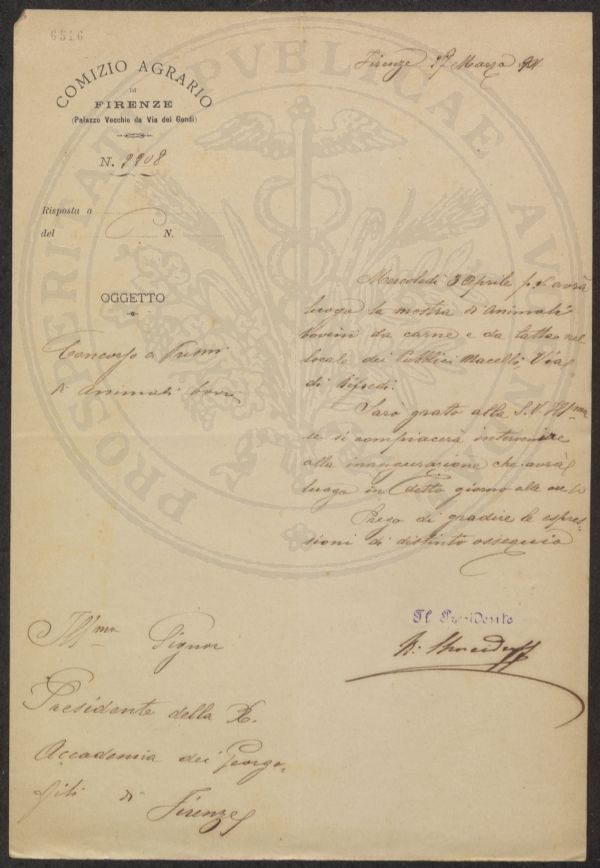 6516
COMIZIO AGRARIO
DI
FIRENZE
(Palazzo Vecchio da Via dei Gondi)
N. 2208
Risposta a
del N.
OGGETTO
Concorso a Premi
di animali bovini
Firenze 27 Marzo
Mercoledì 3 Aprile p.v. avrà
luogo la mostra di animali
bovini da carne e da latte nei
locali dei Pubblici Macelli Via
di Rifredi.
Sarò grato alla S.V. Ill/ma
se si compiacerà intervenire
alla inaugurazione che avrà
luogo in detto giorno alle ore 10
Prego di gradire le espres-
sioni di distinto ossequio
Il Presidente
Ill/mo Signor
Presidente della R.
Accademia dei Georgo-
fili di Firenze
PROSPERITATI PVBLICAE